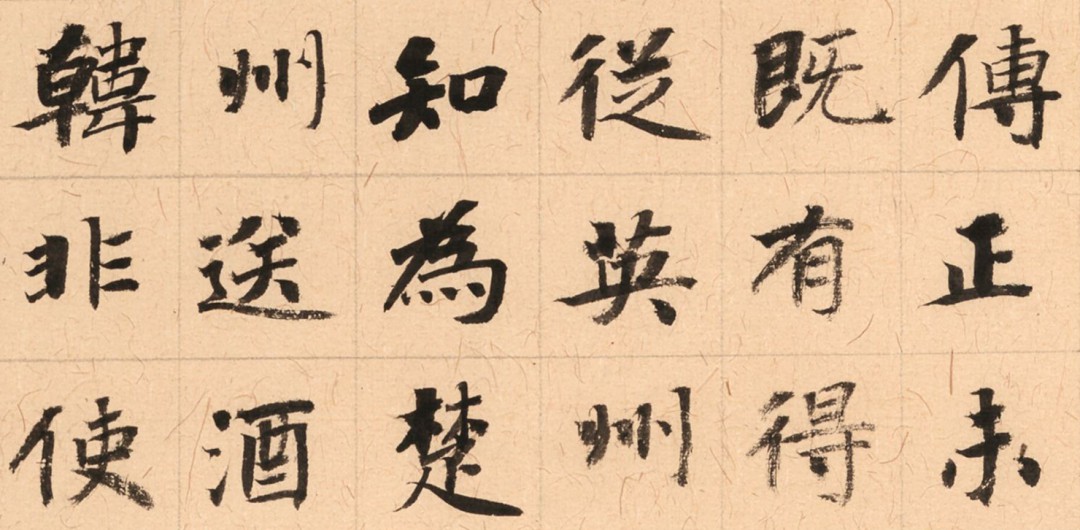 傳正未
既有得
從英州
知為楚
州送酒
韓非使